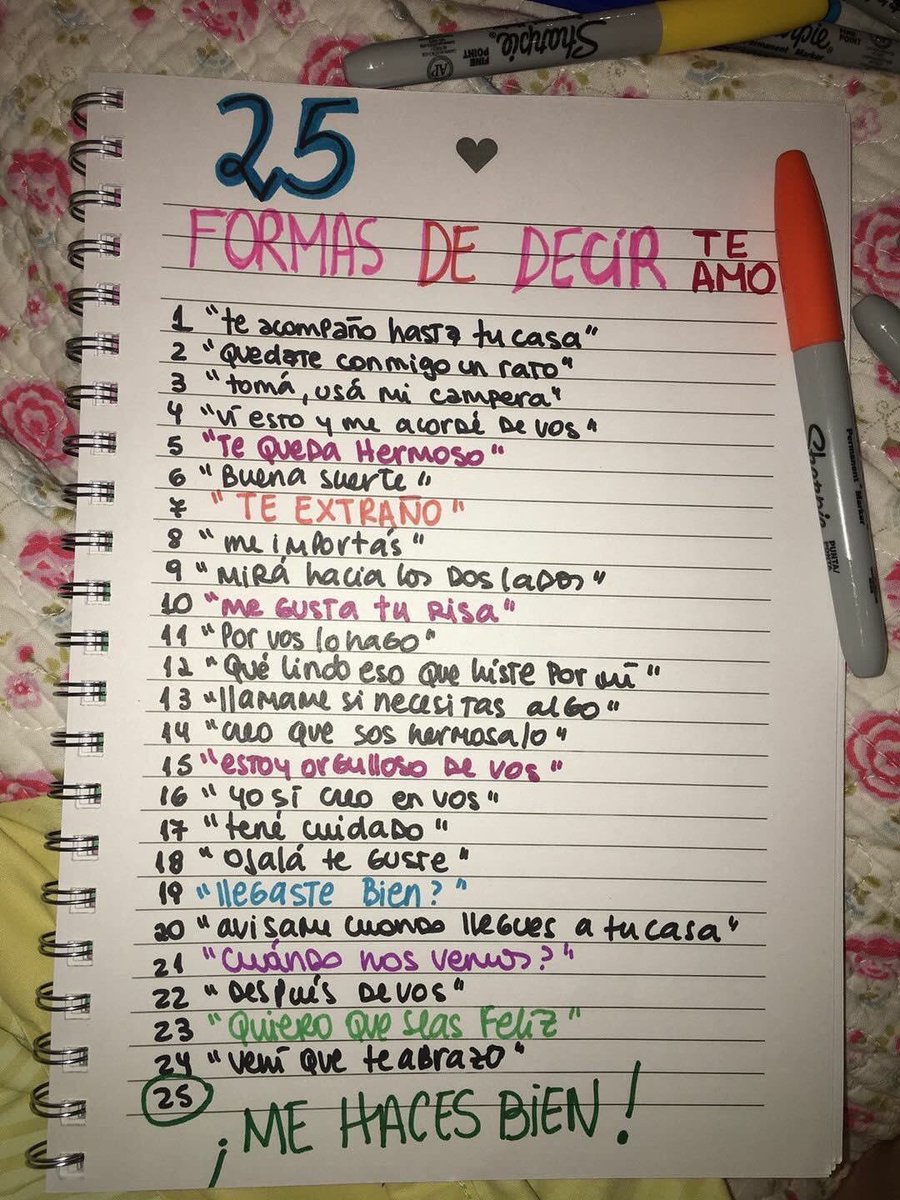 Sharpie
FINE POINT
AP
25
FORMAS DE DECIR TE AMO
1 "te acompaño hasta tu casa"
2 "Quedate conmigo un rato"
3 "tomá, usá mi campera"
4 "ví esto y me acordé de vos"
5 "Te queda hermoso"
6 "Buena suerte"
7 "TE EXTRAÑO"
8 "me importás"
9 "Mirá hacia los dos lados"
10 "Me gusta tu risa"
11 "Por vos lo hago"
12 "Qué lindo eso que histe por mí"
13 "llamame si necesitas algo"
14 "creo que sos hermosa/o"
15 "estoy orgulloso de vos"
16 "yo sí creo en vos"
17 "tené cuidado"
18 "Ojalá te guste"
19 "llegaste bien?"
20 "avisame cuando llegues a tu casa"
21 "Cuándo nos vemos?"
22 "después de vos"
23 "Quiero que seas feliz"
24 "vení que te abrazo"
25 ¡ME HACES BIEN!
Sharpie
Permanent Marker
PUNTA